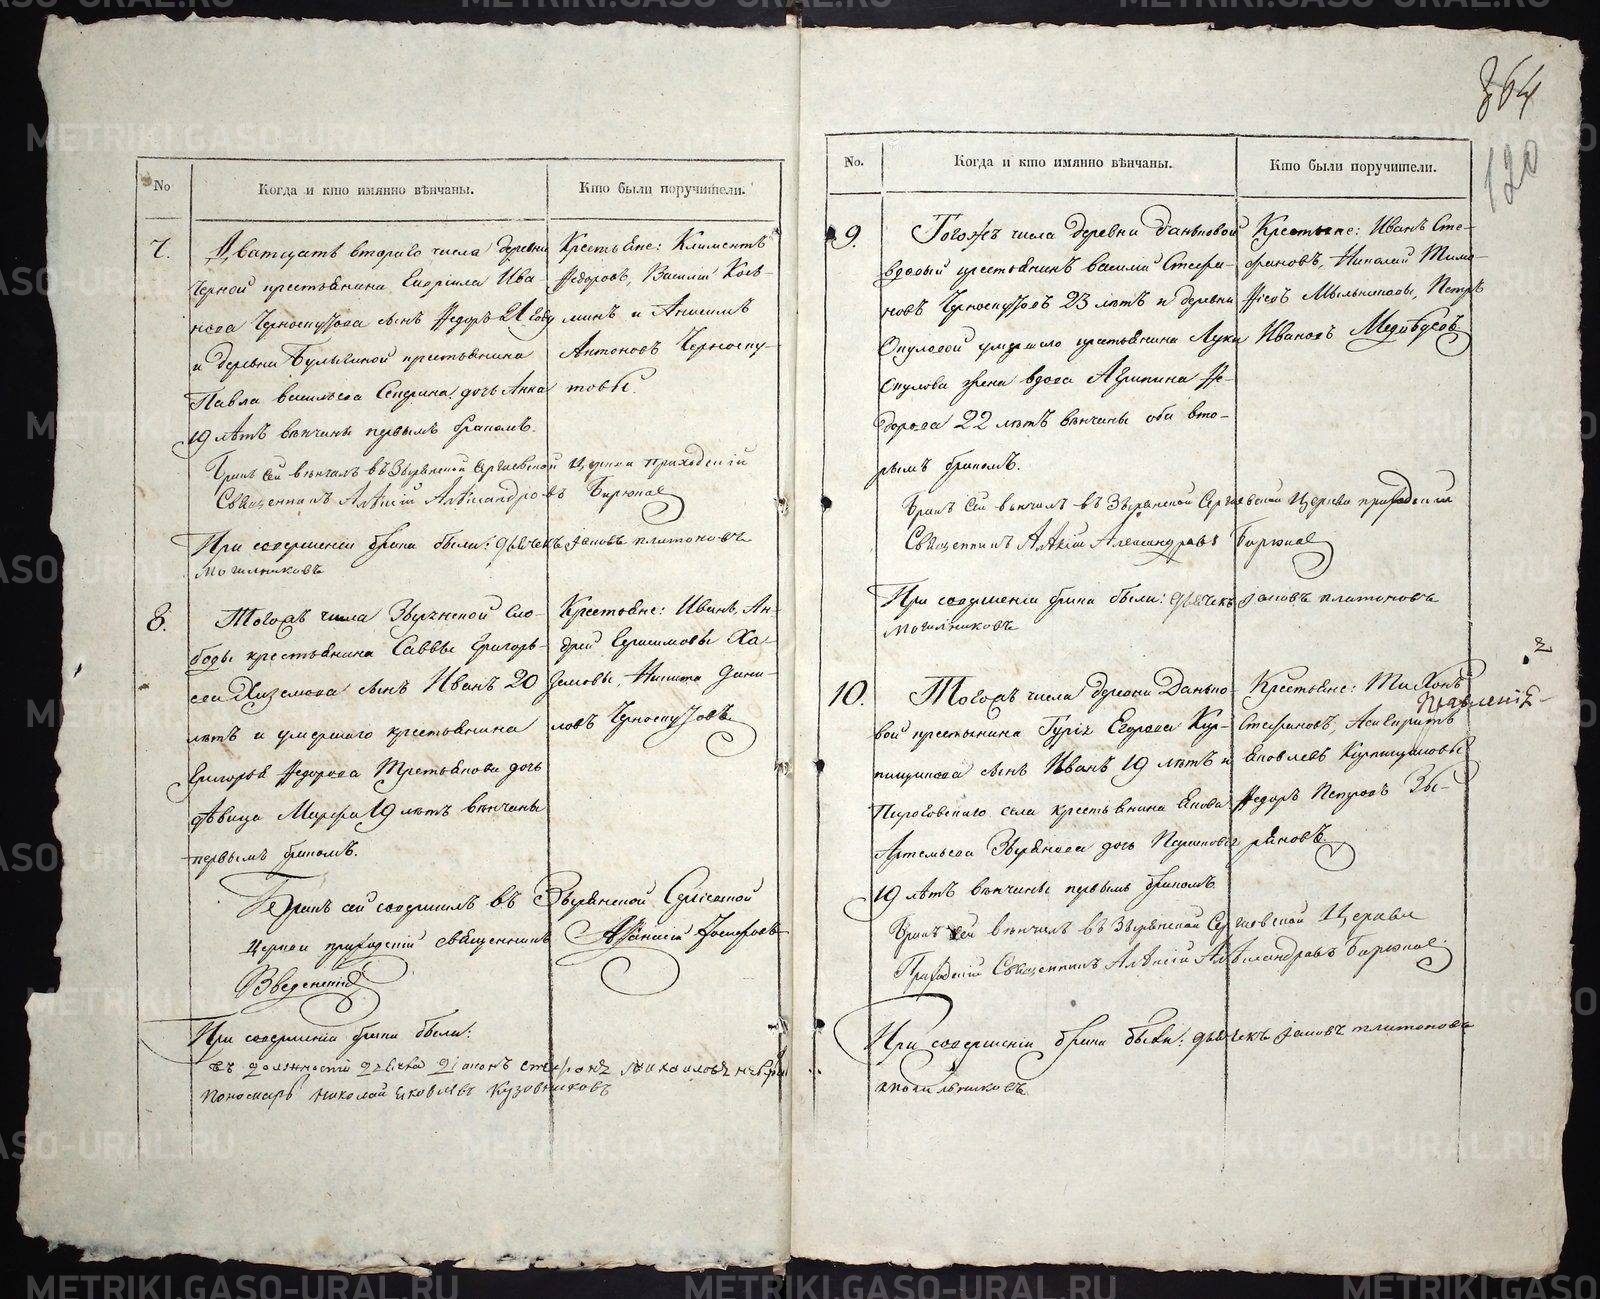 364
120
No
Когда и кто имянно вѣнчаны.
Кто были поручители.
7.
Дватцать втораго числа деревни
Черной крестьянина Гаврила Ива-
нова Черноскутова сынъ Ѳедоръ 21 году
и деревни Булыгиной крестьянина
Павла Васильева дочь Анна
19 лѣтъ вѣнчаны первымъ бракомъ.
Крестьяне: Климентъ
Ѳедоровъ, Василий Козь-
минъ и Анисимъ
Антоновъ Черноску-
товы.
Бракъ сей вѣнчалъ въ Зырянской Сергіевской Церкви приходскій
Священникъ Алѣксій Алѣксандровъ Бирюковъ
При совершеніи брака были: дьячекъ Іаковъ Платоновъ
Могильниковъ
8.
Тогожъ числа Зырянской Сло-
боды крестьянина Саввы Григорь-
ева сынъ Иванъ 20
лѣтъ и умершаго крестьянина
Григорья Ѳедорова Третьякова дочь
дѣвица Марфа 19 лѣтъ вѣнчаны
первымъ бракомъ.
Крестьяне: Иванъ, Ан-
дрей Герасимовы Ха-
замовы, Никита Дани-
ловъ Черноскутовъ.
Бракъ сей совершилъ въ Зырянской Сергіевской
Церкви приходскій священникъ Аѳанасій Іосифовъ
Введенскій
При совершеніи брака были:
въ должности дьячка діаконъ Стефанъ Михайловъ
Пономарь Николай Яковлевъ Кузовниковъ
No.
Когда и кто имянно вѣнчаны.
Кто были поручители.
9.
Тогожъ числа деревни Даньковой
вдовый крестьянинъ Василий Стефа-
новъ Черноскутовъ 23 лѣтъ и деревни
Окуловой умершаго крестьянина Луки
Окулова жена вдова Агрипина Ѳе-
дорова 22 лѣтъ вѣнчаны оба вто-
рымъ бракомъ.
Крестьяне: Иванъ Сте-
фановъ, Николай Тимо-
ѳеевъ Мыльниковы, Петръ
Ивановъ Медвѣдевъ
Бракъ сей вѣнчалъ въ Зырянской Сергіевской Церкви приходскій
Священникъ Алѣксій Александровъ Бирюковъ
При совершеніи брака были: дьячекъ Іаковъ Платоновъ
Могильниковъ
10.
Тогожъ числа деревни Данько-
вой крестьянина Гурія Егорова Кир-
пищикова сынъ Иванъ 19 лѣтъ и
Пироговскаго села крестьянина Якова
Артемьева Зырянова дочь Парасковья
19 лѣтъ вѣнчаны первымъ бракомъ.
Крестьяне: Тихонъ
Стефановъ, Асинкритъ
Яковлевъ Кирпищиковы
Ѳедоръ Петровъ Зы-
ряновъ.
Бракъ сей вѣнчалъ въ Зырянской Сергіевской Церкви
Приходскій Священникъ Алѣксій Алѣксандровъ Бирюковъ.
При совершеніи брака были: дьячекъ Іаковъ Платоновъ
Могильниковъ
METRIKI.GASO-URAL.RU